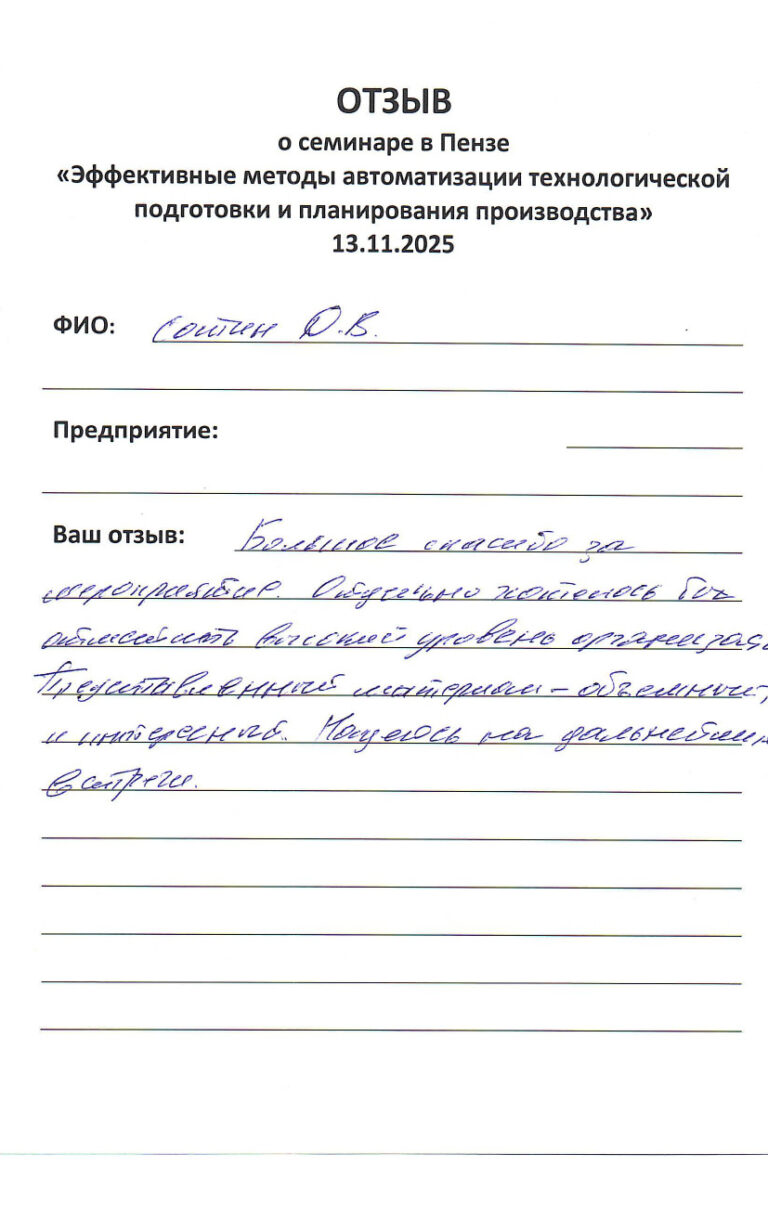 ОТЗЫВ
о семинаре в Пензе
«Эффективные методы автоматизации технологической
подготовки и планирования производства»
13.11.2025
ФИО: О.В.
Предприятие:
Ваш отзыв: Большое спасибо за
мероприятие. Отдельно хотелось бы
отметить высокий уровень организац
Представленный материал – объемный,
и интересный. Надеюсь на дальнейшие
встречи.